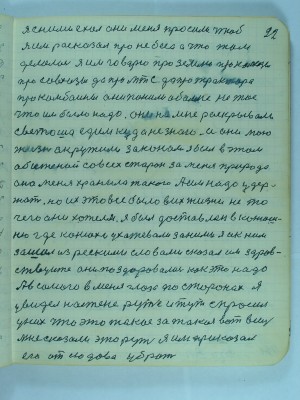 22
я с ними ехал они меня просили чтоб
я им рассказал про небеса что там
делали я им говорю про землю про колхозы
про совхозы да про МТС да про трактора
про комбайны они поним не тое
что им было надо, они на мне раскрывали
свет едем куда не знаю. и они мою
жизнь окружили законом я был в этом
со всех сторон за меня природа
она меня хранила такого я им надо удер-
жат, но их это все было в их жизни не то
чего они хотели. я был доставлен в конюш-
ню где конюха ухаживали за ними я и к ним
зашел из рускими словами сказал им здрав-
ствуйте они поздоровались как это надо
А в самого в меня глаза по сторонах я
увидел на стене и тут спросил
у них что это такое за такая вот вещ
мне сказали это я им приказал
его отсюдова убрат